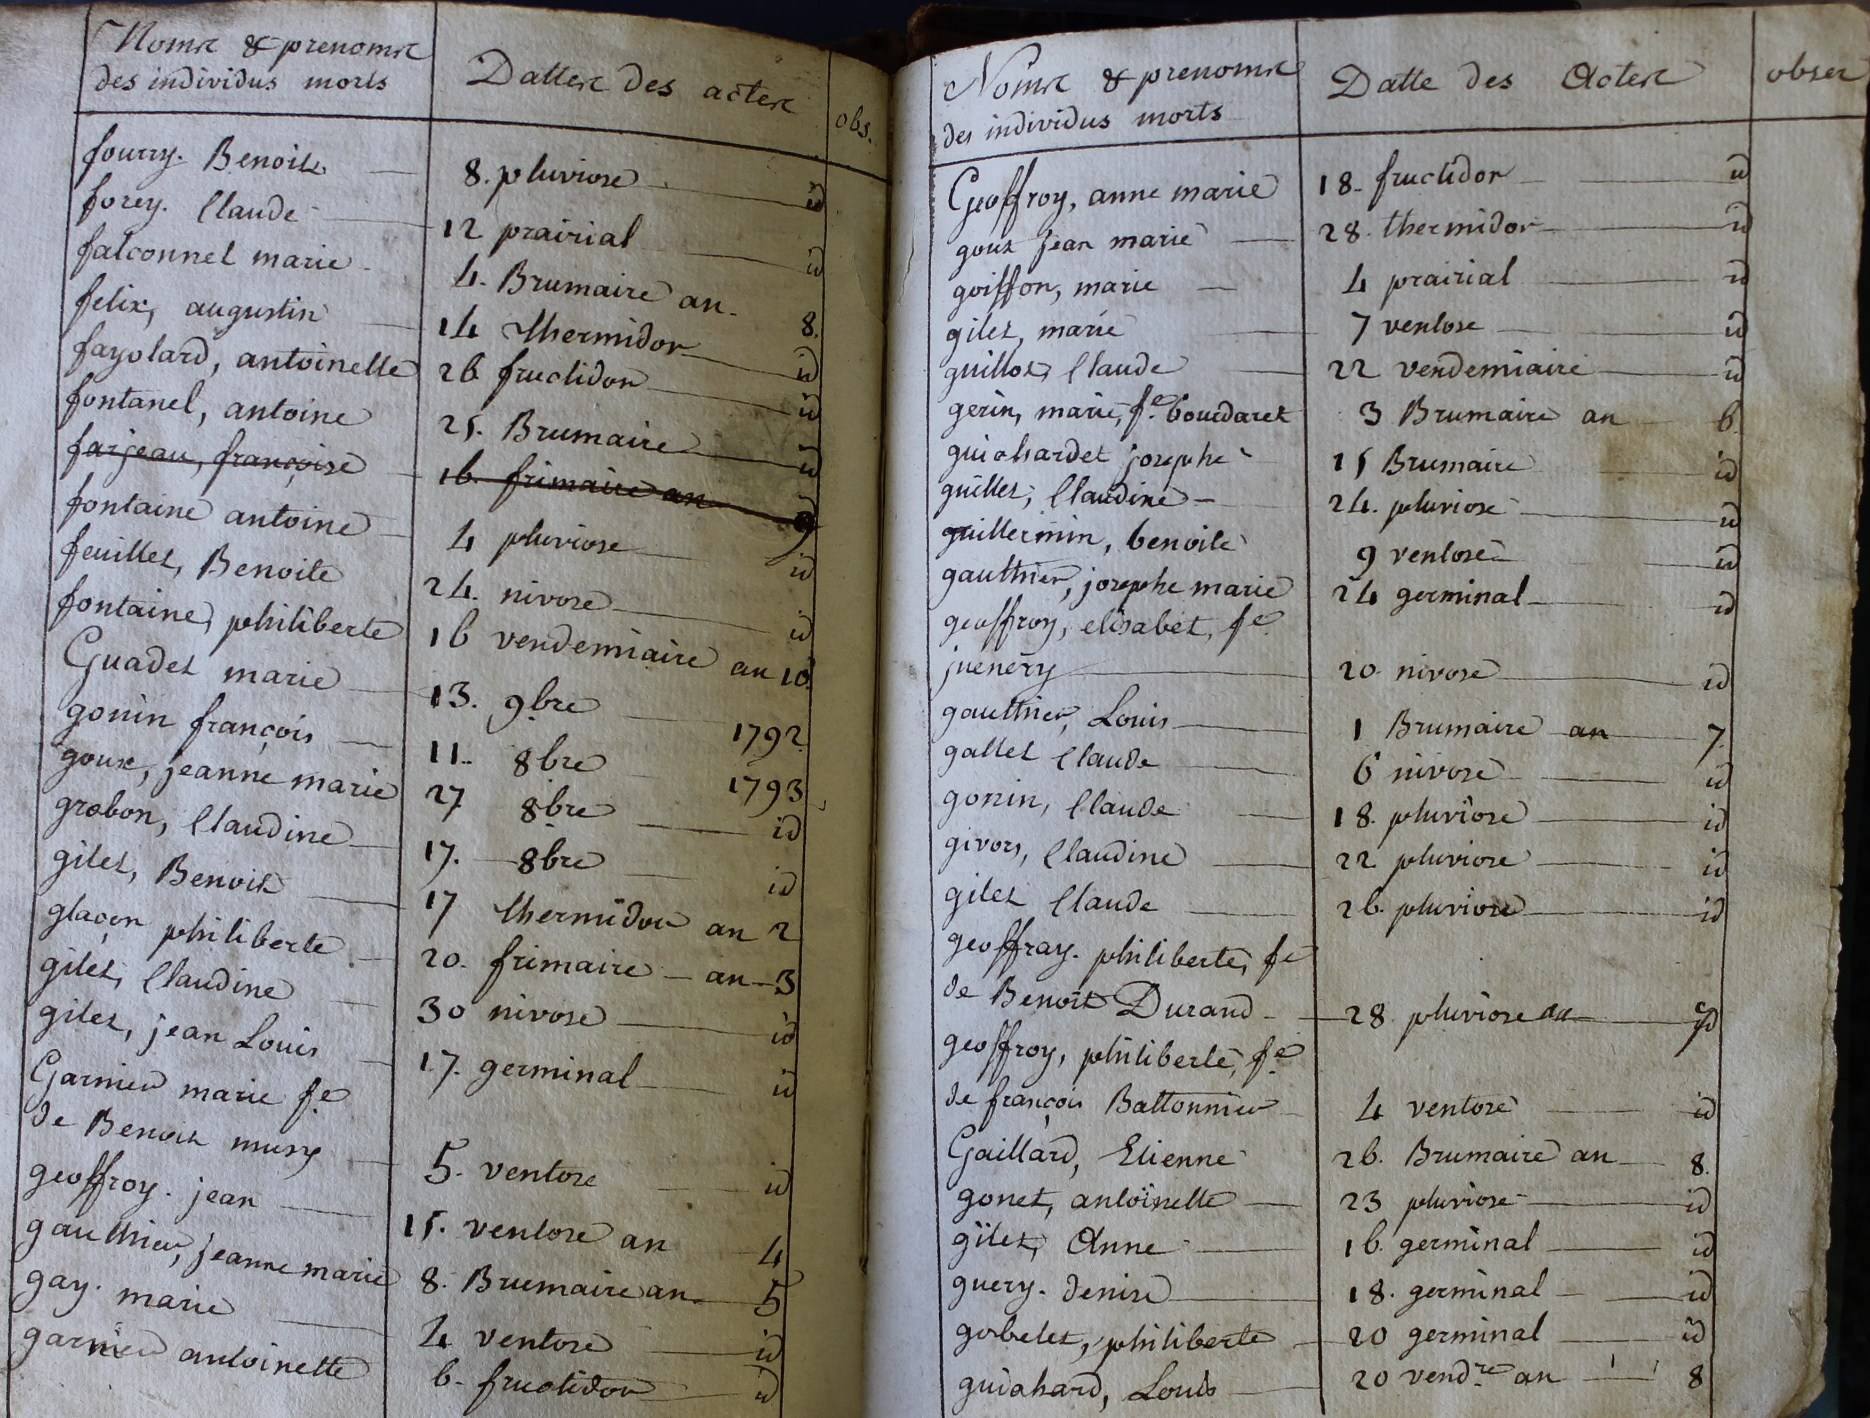 Noms & prenoms
des individus morts
Dattes des actes
obs.
fourry. Benoit 8. pluviose id
forey. Claude 12 prairial id
falconnet marie 4. Brumaire an 8.
felix, augustin 14 thermidor id
fayolard, antoinette 26 fructidor id
fontanel, antoine 25. Brumaire id
farjeau, françoise 16. frimaire an 9
fontaine antoine 4 pluviose id
feuillet, Benoite 24. nivose id
fontaine, philiberte 16 vendemiaire an 10.
Guadet marie 13. 9bre 1792.
gonin françois 11. 8bre 1793
goux, jeanne marie 27 8bre id
grobon, Claudine 17. 8bre id
gilet, Benoit 17 thermidor an 2
glaçon philiberte 20. frimaire an 3
gilet, Claudine 30 nivose id
gilet, jean Louis 17. germinal id
Garnier marie fe
de Benoit mury 5. ventose id
geoffroy. jean 15. ventose an 4
gauthier, jeanne marie 8. Brumaire an 5
gay. marie 4 ventose id
garnier antoinette 6. fructidor id
Noms & prenoms
des individus morts
Datte des Actes
obser
Geoffroy, anne marie 18. fructidor id
goux jean marie 28. thermidor id
goiffon, marie 4 prairial id
gilet, marie 7 ventose id
guillot, Claude 22 vendemiaire id
gerin, marie, fe. bourdaret 3 Brumaire an 6.
guichardet josephe 15 Brumaire id
guillet, Claudine 24. pluviose id
guillermin, benoite 9 ventose id
gauthier, josephe marie 24 germinal id
geoffroy, elisabet, fe
juenery 20. nivose id
gauthier, Louis 1 Brumaire an 7.
gallet Claude 6 nivose id
gonin, Claude 18. pluviose id
givors, Claudine 22 pluviose id
gilet Claude 26. pluviose id
geoffray. philiberte, fe
de Benoit Durand 28 pluviose id
geoffroy, philiberte, fe
de françois Battonnier 4 ventose id
Gaillard, Etienne 26. Brumaire an 8.
gonet, antoinette 23 pluviose id
gilet, Anne 16. germinal id
guery. denise 18. germinal id
gobelet, philiberte 20 germinal id
guichard, Louis 20 vend.re an 8